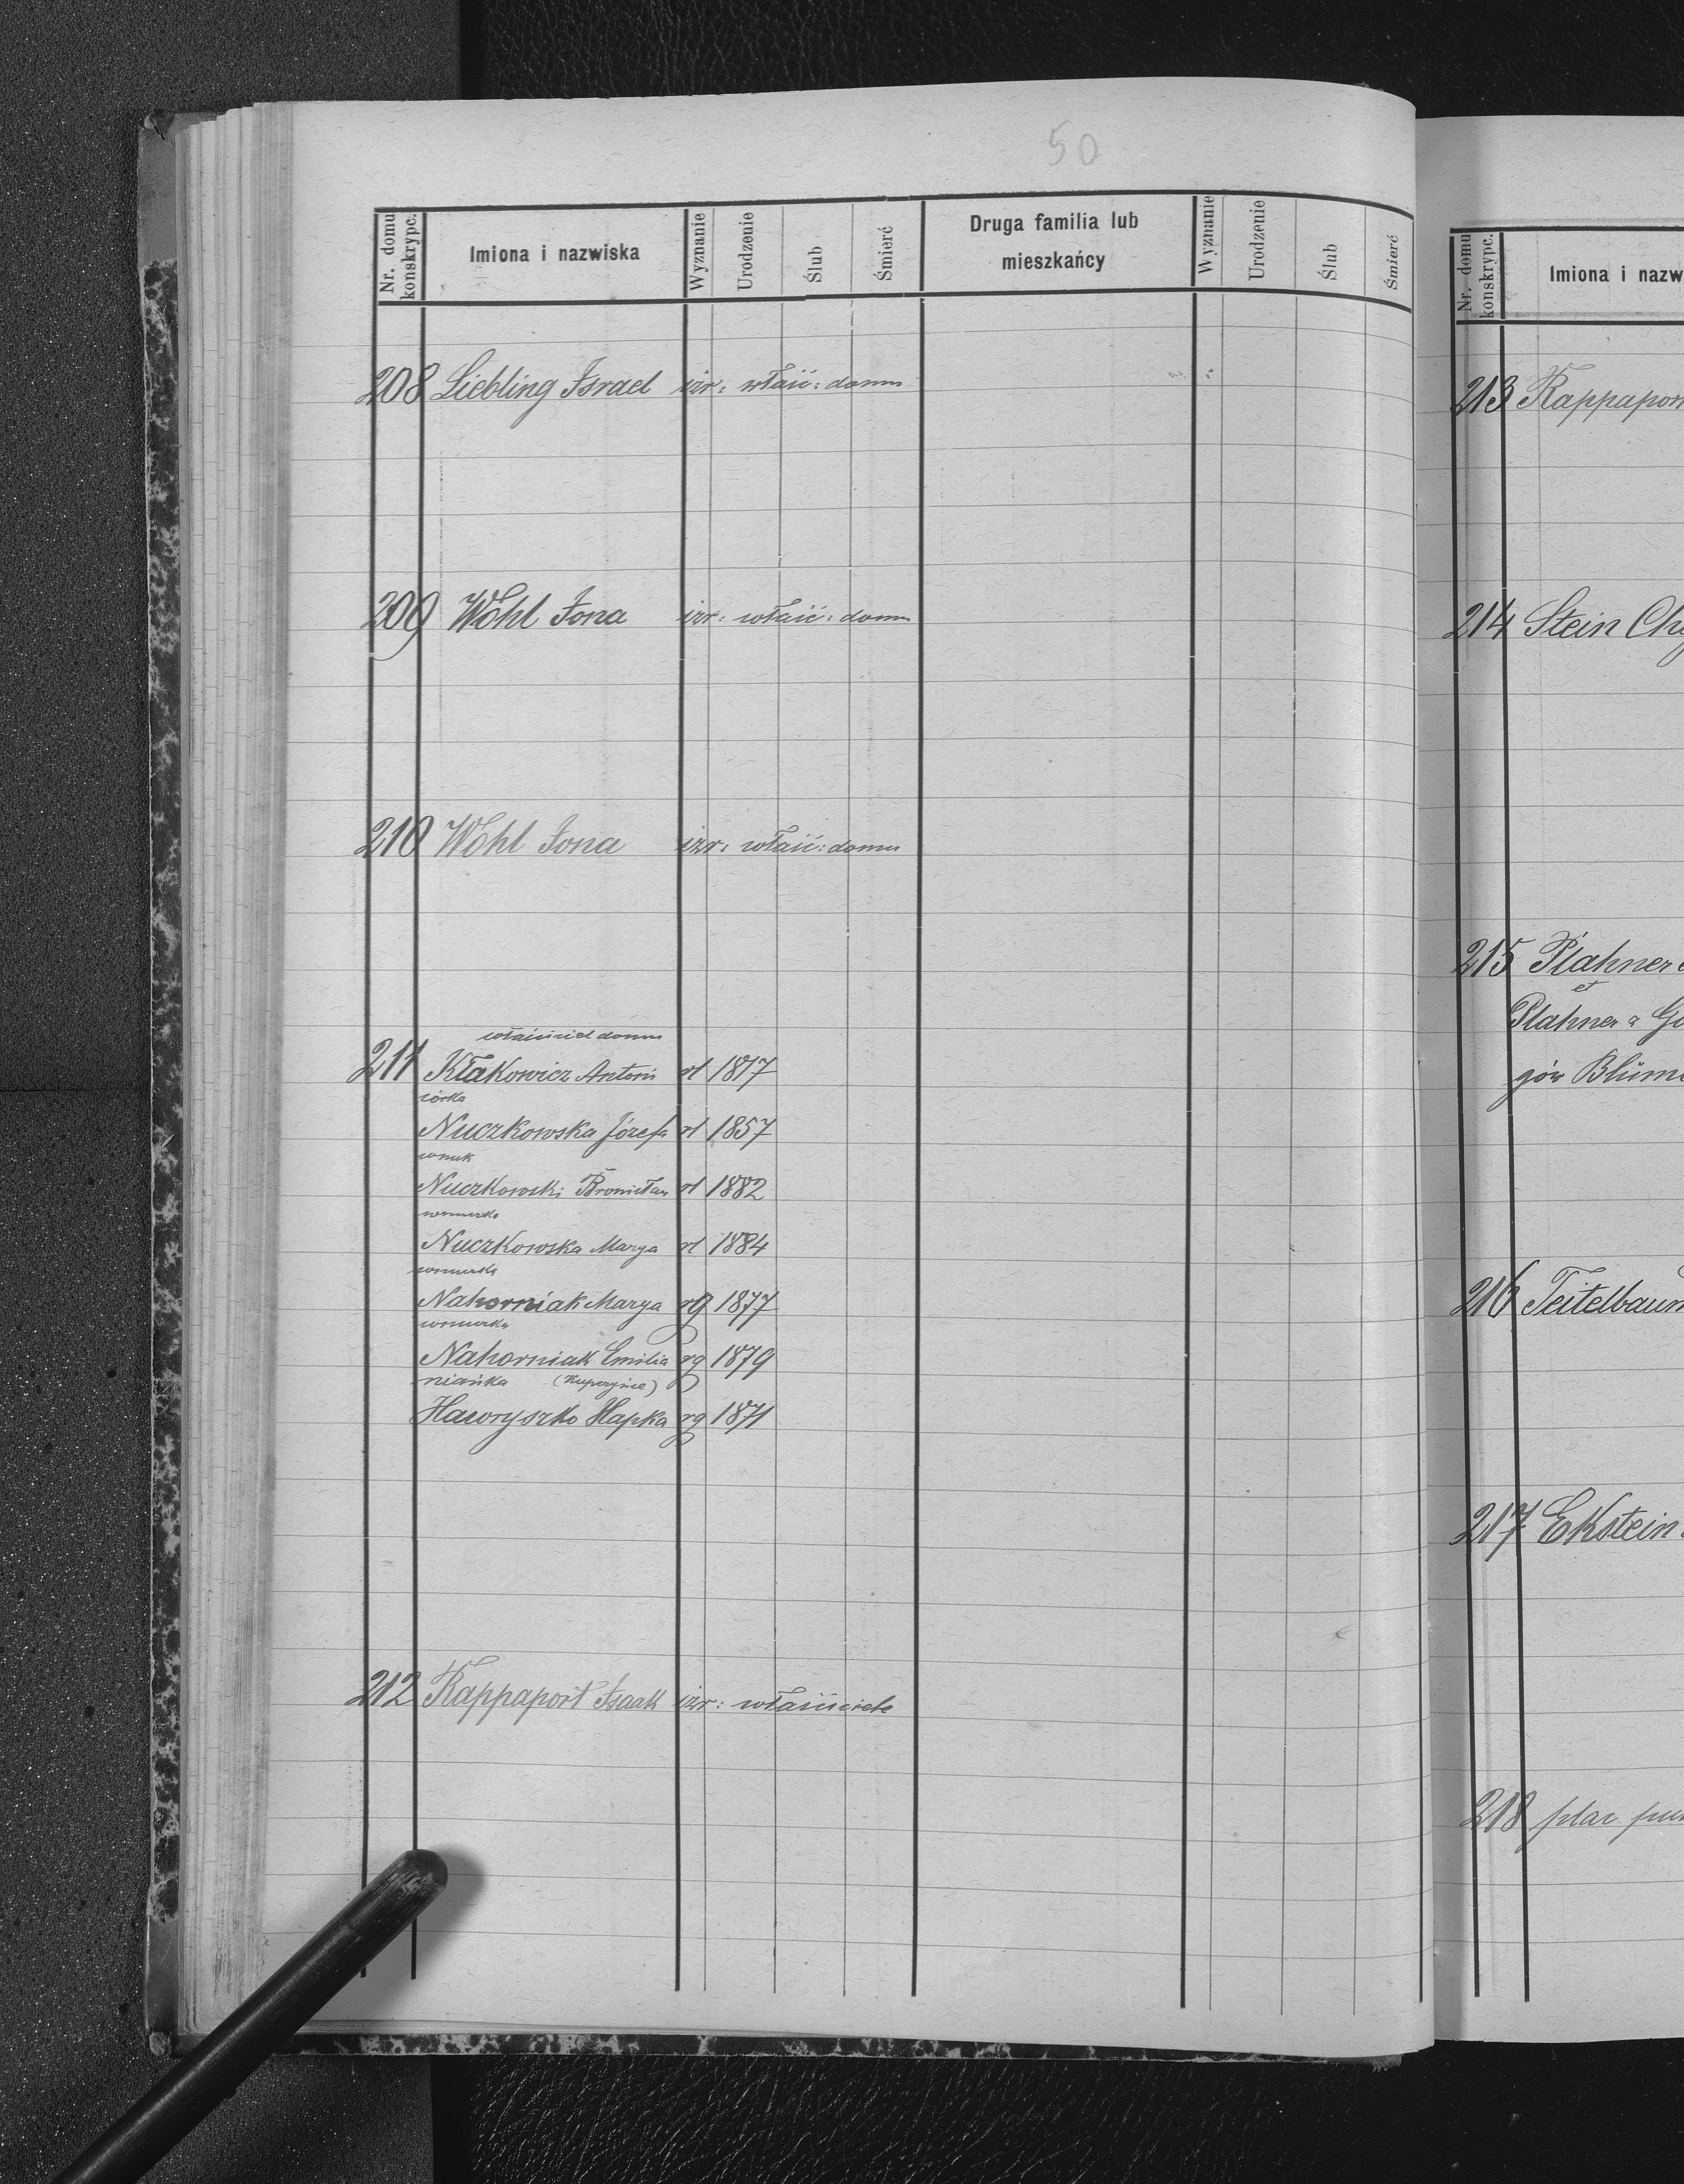 50
Nr. domu konskrypc. Imiona i nazwiska Wyznanie Urodzenie Ślub Śmierć Druga familia lub mieszkańcy Wyznanie Urodzenie Ślub Śmierć
208 Liebling Israel izr: właść: domu
209 Wohl Jona izr: właść: domu
210 Wohl Jona izr: właść: domu
właściciel domu
211 Kłakowicz Antoni rł 1817
córka
Nuczkowska Józefa rł 1857
wnuk
Nuczkowski Bronisław rł 1882
wnuczka
Nuczkowska Marya rł 1884
wnuczka
Nahorniak Marya rg 1877
wnuczka
Nahorniak Emilia rg 1879
niańka (Kuperyńce)
Hawryszko Hapka rg 1871
212 Rappaport Isaak izr: właściciele
Nr. domu konskrypc. Imiona i nazw
213 Rappapor
214 Stein Ch
215 Plahner
et
Plahner a Go
gów Blüme
216 Teitelbaum
217 Ekstein
218 plac pu